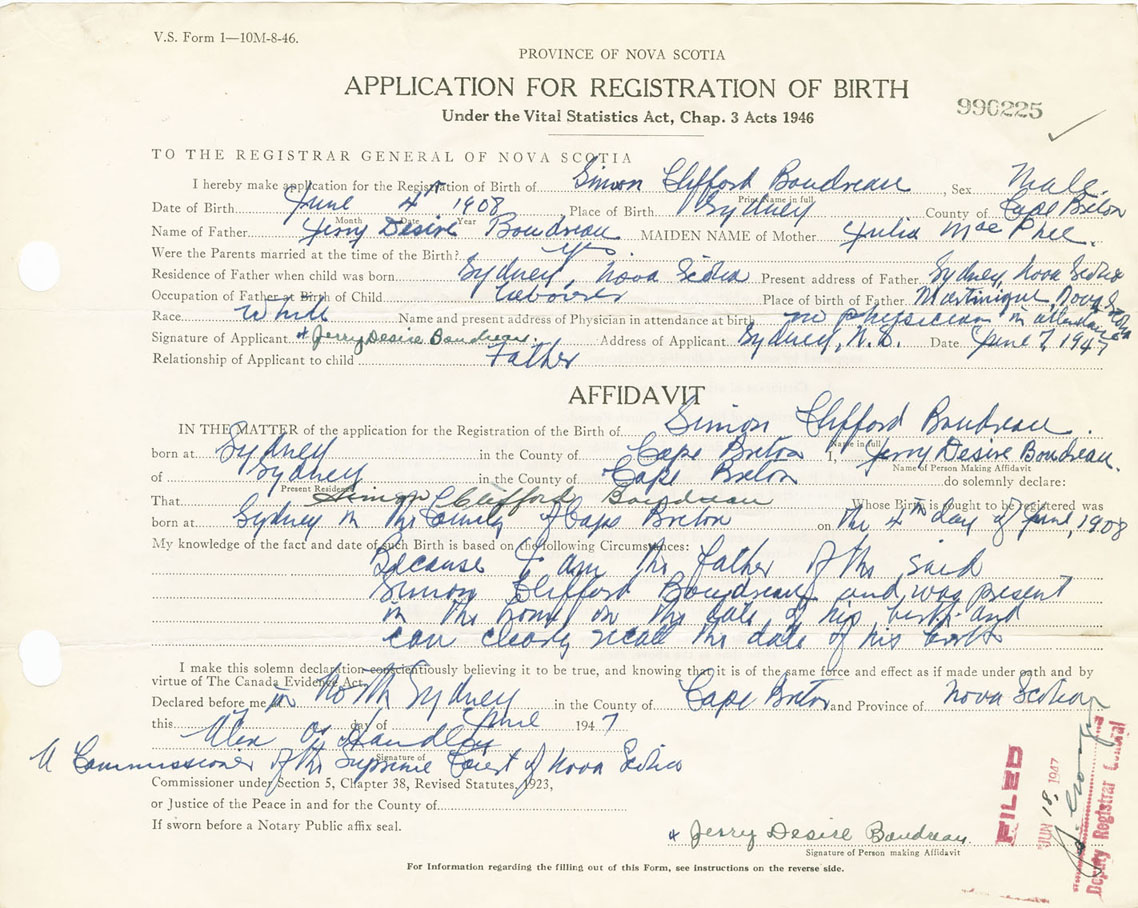 V.S. Form 1—10M-8-46.
PROVINCE OF NOVA SCOTIA
APPLICATION FOR REGISTRATION OF BIRTH
Under the Vital Statistics Act, Chap. 3 Acts 1946
990225
TO THE REGISTRAR GENERAL OF NOVA SCOTIA
I hereby make application for the Registration of Birth of Simon Clifford Boudreau, Sex Male.
Print Name in full
Date of Birth June 4th 1908 Place of Birth Sydney County of Cape Breton
Month Date Year
Name of Father Jerry Desire Boudreau MAIDEN NAME of Mother Julia Mac Phee.
Were the Parents married at the time of the Birth? Yes
Residence of Father when child was born Sydney, Nova Scotia Present address of Father Sydney, Nova Scotia
Occupation of Father at Birth of Child Labourer Place of birth of Father Martinique, Nova Scotia
Race White Name and present address of Physician in attendance at birth no physician in attendance
Signature of Applicant x Jerry Desire Boudreau. Address of Applicant Sydney, N.S. Date June 7, 1947
Relationship of Applicant to child Father
AFFIDAVIT
IN THE MATTER of the application for the Registration of the Birth of Simon Clifford Boudreau.
Name in full
born at Sydney in the County of Cape Breton I, Jerry Desire Boudreau.
Name of Person Making Affidavit
of Sydney in the County of Cape Breton do solemnly declare:
Present Residence
That Simon Clifford Boudreau Whose Birth is sought to be registered was
born at Sydney in the County of Cape Breton on the 4th day of June, 1908
My knowledge of the fact and date of such Birth is based on the following Circumstances:
Because I am the father of the said
Simon Clifford Boudreau and was present
in the home on the date of his birth and
can clearly recall the date of his birth
I make this solemn declaration conscientiously believing it to be true, and knowing that it is of the same force and effect as if made under oath and by
virtue of The Canada Evidence Act.
Declared before me in North Sydney in the County of Cape Breton and Province of Nova Scotia
this 7th day of June 1947
Alex O. Handley
Signature of
A Commissioner of the Supreme Court of Nova Scotia
Commissioner under Section 5, Chapter 38, Revised Statutes, 1923,
or Justice of the Peace in and for the County of
If sworn before a Notary Public affix seal.
x Jerry Desire Boudreau.
Signature of Person making Affidavit
For Information regarding the filling out of this Form, see instructions on the reverse side.
FILED
JUN 18, 1947
Deputy Registrar General